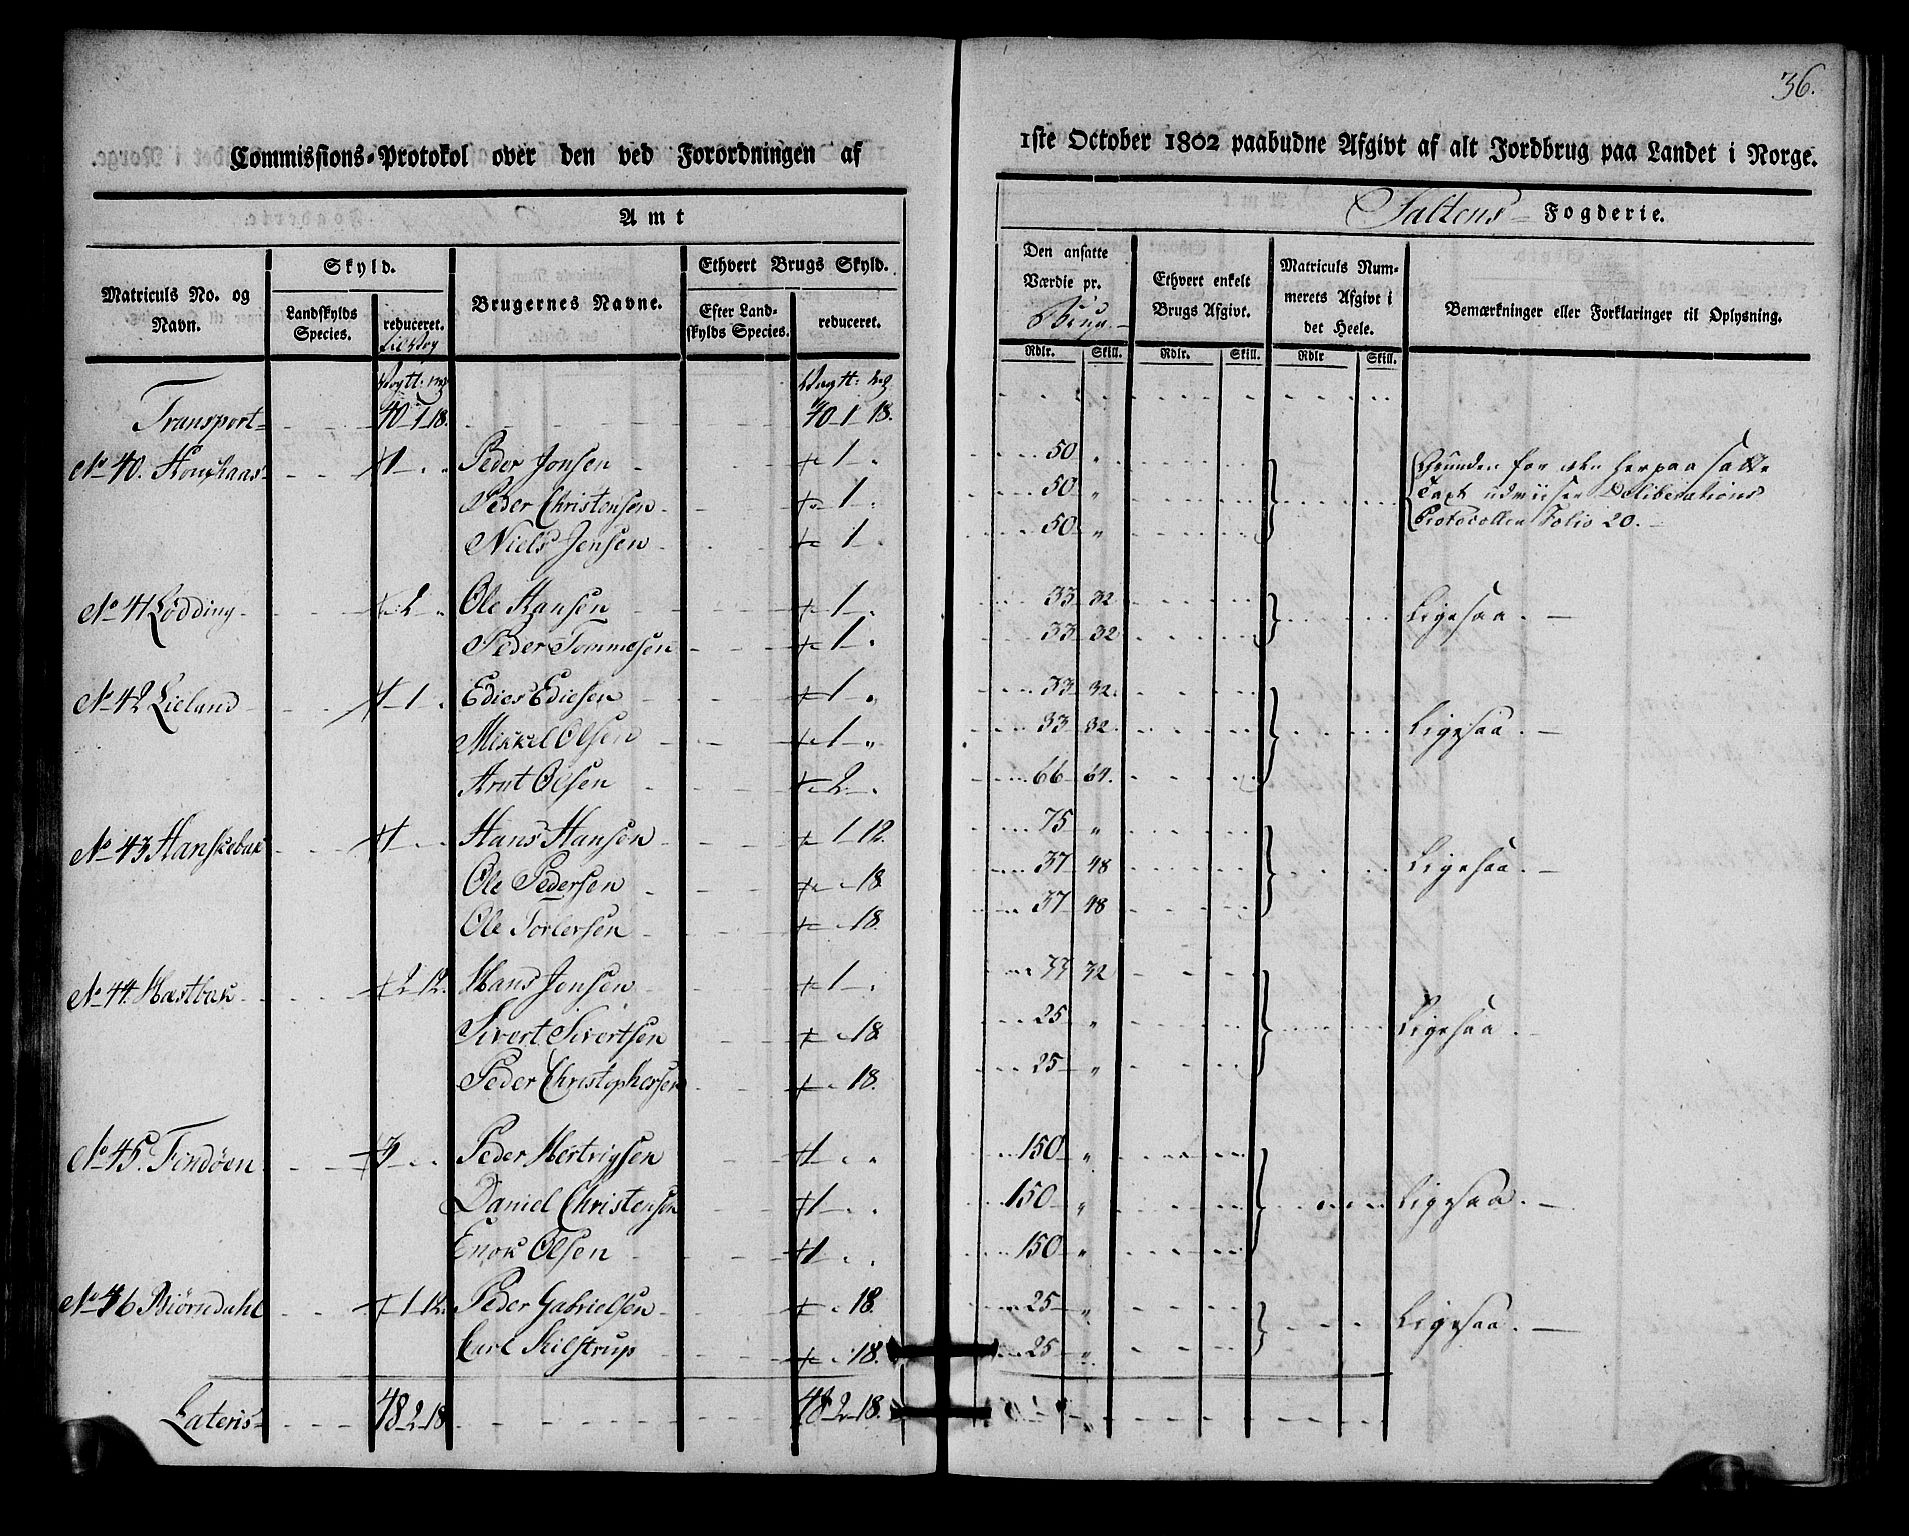 36.
Commissions-Protokol over den ved Forordningen af 1ste October 1802 paabudne Afgivt af alt Jordbrug paa Landet i Norge.
Amt Saltens Fogderie.
Matriculs No. og Navn.
Skyld.
Landskylds Species.
reduceret.
Brugernes Navne.
Ethvert Brugs Skyld.
Efter Landskylds Species.
reduceret.
Den ansatte Værdie pr.
Ethvert enkelt Brugs Afgivt.
Matriculs Nummerets Afgivt i det Heele.
Bemærkninger eller Forklaringer til Oplysning.
Rdlr. Skill. Rdlr. Skill. Rdlr Skill.
Transport 40 1 18. 40 1 18.
No 40. 1 Peder Jonsen 1 50 Grunden for den herpaa satte
Peder Christensen 1 50 Taxt udviiser Deliberations
Niels Jensen 1 50 Protocollen Folio 20.
No 41 Lødding 2 Ole Hansen 1 33 32 Ligesaa.
Peder Tommesen 1 33 32
No 42 Lieland 1 1 Edies Ediesen 1 33 32. Ligesaa.
Mikkel Olsen 1 33 32.
Arnt Olsen 2 66 64.
No 43 Hanskebak 1 Hans Hansen 1 12. 75 Ligesaa.
Ole Pedersen 18 37 48
Ole Torlersen 18. 37 48
No 44. Mæstbak 2 12. Hans Jensen 1 32 Ligesaa.
Sivert Sivertsen 18 25
Peder Christophersen 18. 25
No 45. Findøen 3 Peder Hertvigsen 1 150 Ligesaa.
Daniel Christensen 1 150
Enok Olsen 1 150
No 46 Biørndahl 1 12. Peder Gabrielsen 18. 25 Ligesaa.
Carl Skilstrup 18. 25
Lateris 48 2 18 48 2 18.